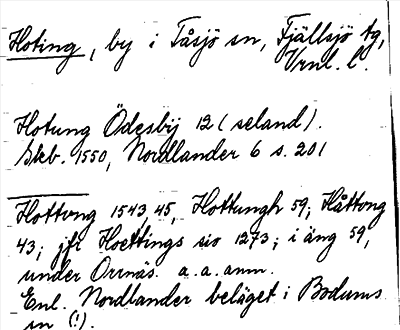 Hoting, by i Tåsjö sn, Fjällsjö tg,
Vrnl. l.
Hotung Ödesbÿ 12 (seland).
Skb. 1550, Nordlander 6 s. 201
Hottvng 1543, 45, Hottungh 59; Håttong
43; jfr Hoettings sio 1273; i äng 59,
under Ormäs. a.a. anm.
Enl. Nordlander beläget i Bodums
sn (!).